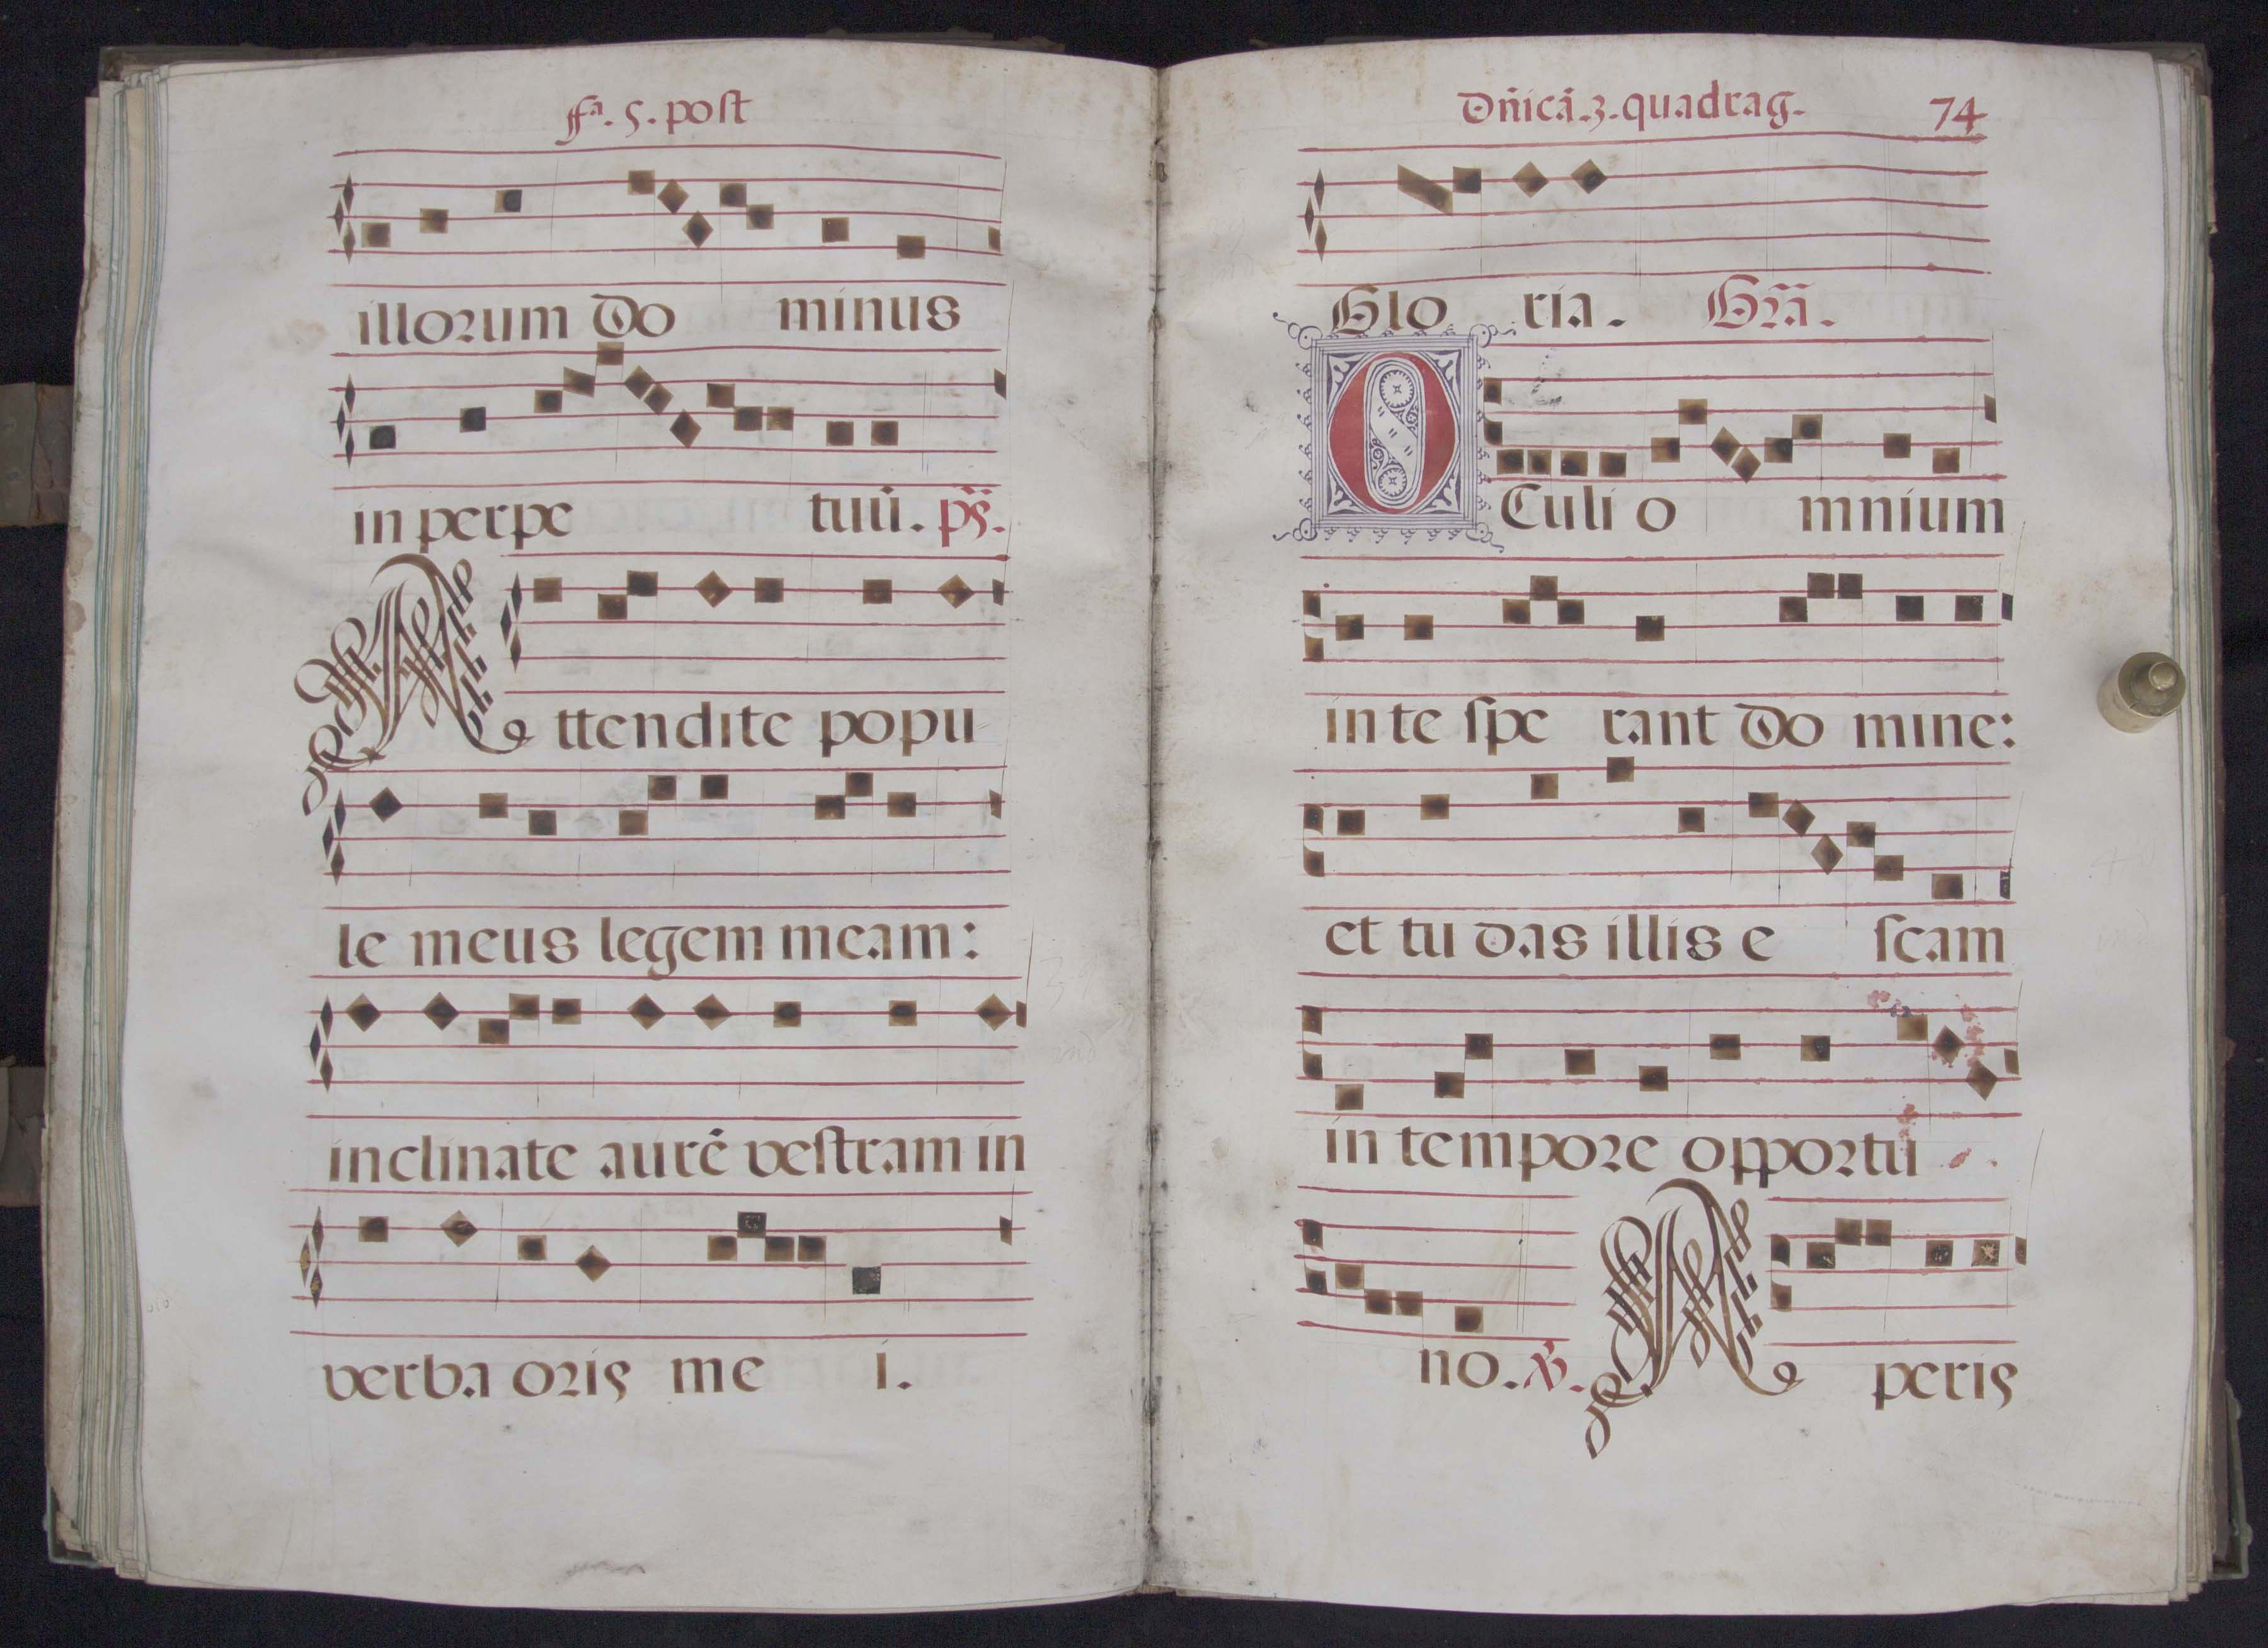 fᵃ. 5. post
illorum Do minus
in perpe tuũ. ps̃.
Attendite popu
le meus legem meam:
inclinate aurẽ vestram in
verba oris me i.
Dñicã. 3. quadrag. 74
Glo ria. Gra̴.
OCuli o mnium
in te spe rant Do mine:
et tu das illis e scam
in tempore opportu
no. ℣. A peris